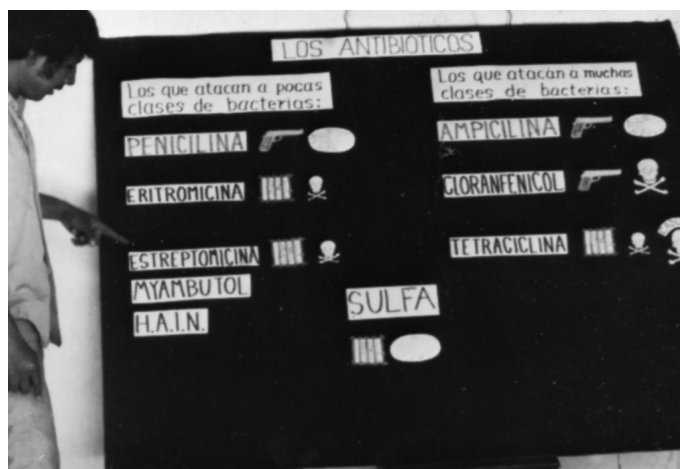 LOS ANTIBIOTICOS
Los que atacan a pocas
clases de bacterias:
PENICILINA
ERITROMICINA
ESTREPTOMICINA
MYAMBUTOL
H.A.I.N.
Los que atacan a muchas
clases de bacterias:
AMPICILINA
CLORANFENICOL
TETRACICLINA
SULFA